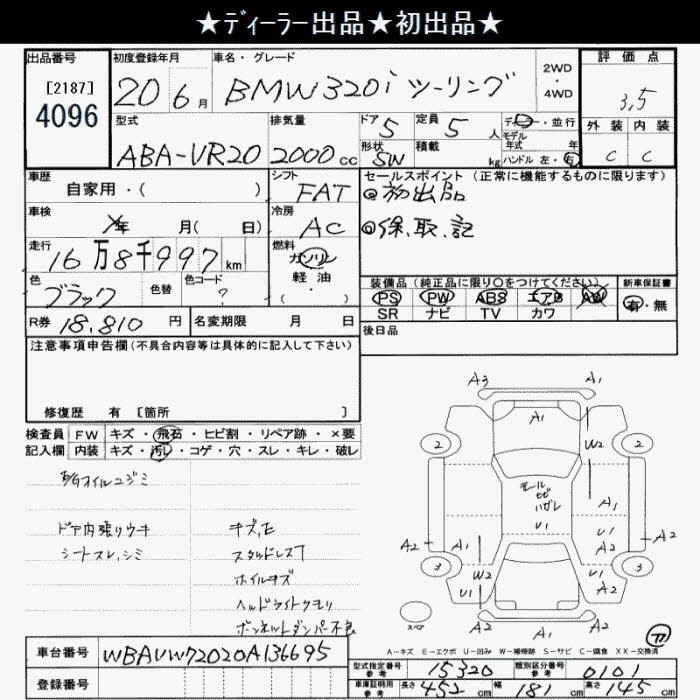 ★ディーラー出品★初出品★
出品番号 初度登録年月 車名・グレード 評価点
[2187]
4096
20年6月 BMW320i ツーリング 2WD・4WD 3,5
型式 排気量 ドア 5 定員 5人 ディーラー・並行 外装 内装
モデル年式 年
ABA-VR20 2000cc 形状 SW 積載 kg ハンドル 左・右 C C
車歴 シフト セールスポイント (正常に機能するものに限ります)
自家用・( ) FAT ◎初出品
車検 年 月( 日) 冷房 AC ◎保、取、記
走行 燃料
16万8千997km ガソリン
軽油
・( )
色 色替 色コード
ブラック ?
装備品 (純正品に限り○をつけてください) 新車保証書
PS PW ABS エアB AW 有・無
SR ナビ TV カワ
R券 18,810円 名変期限 月 日
後日品
注意事項申告欄(不具合内容等は具体的に記入して下さい)
修復歴 有 [箇所 ]
検査員 FW キズ・飛石・ヒビ割・リペア跡・×要
記入欄 内装 キズ・汚れ・コゲ・穴・スレ・キレ・破レ
オイルニジミ
ドア内張りウキ キズ,凹
シートスレ,シミ スタッドレス7
ホイルキズ
ヘッドライトクモリ
ボンネットダンパー不良
A3 A1
A1
W2
2 2
モール
ヒビ
ハガレ
A1
U1 U1
A2 A1 A2 A2
3 W2 U1 3
U1 A2
スペア
A2 A1
A-キズ E-エクボ U-凹み W-補修跡 S-サビ C-腐食 XX-交換済
車台番号 WBAVW72020A136695
登録番号
型式指定番号 参考 15320 類別区分番号 参考 0101
車庫証明用 参考 長さ 452cm 幅 181cm 高さ 145cm